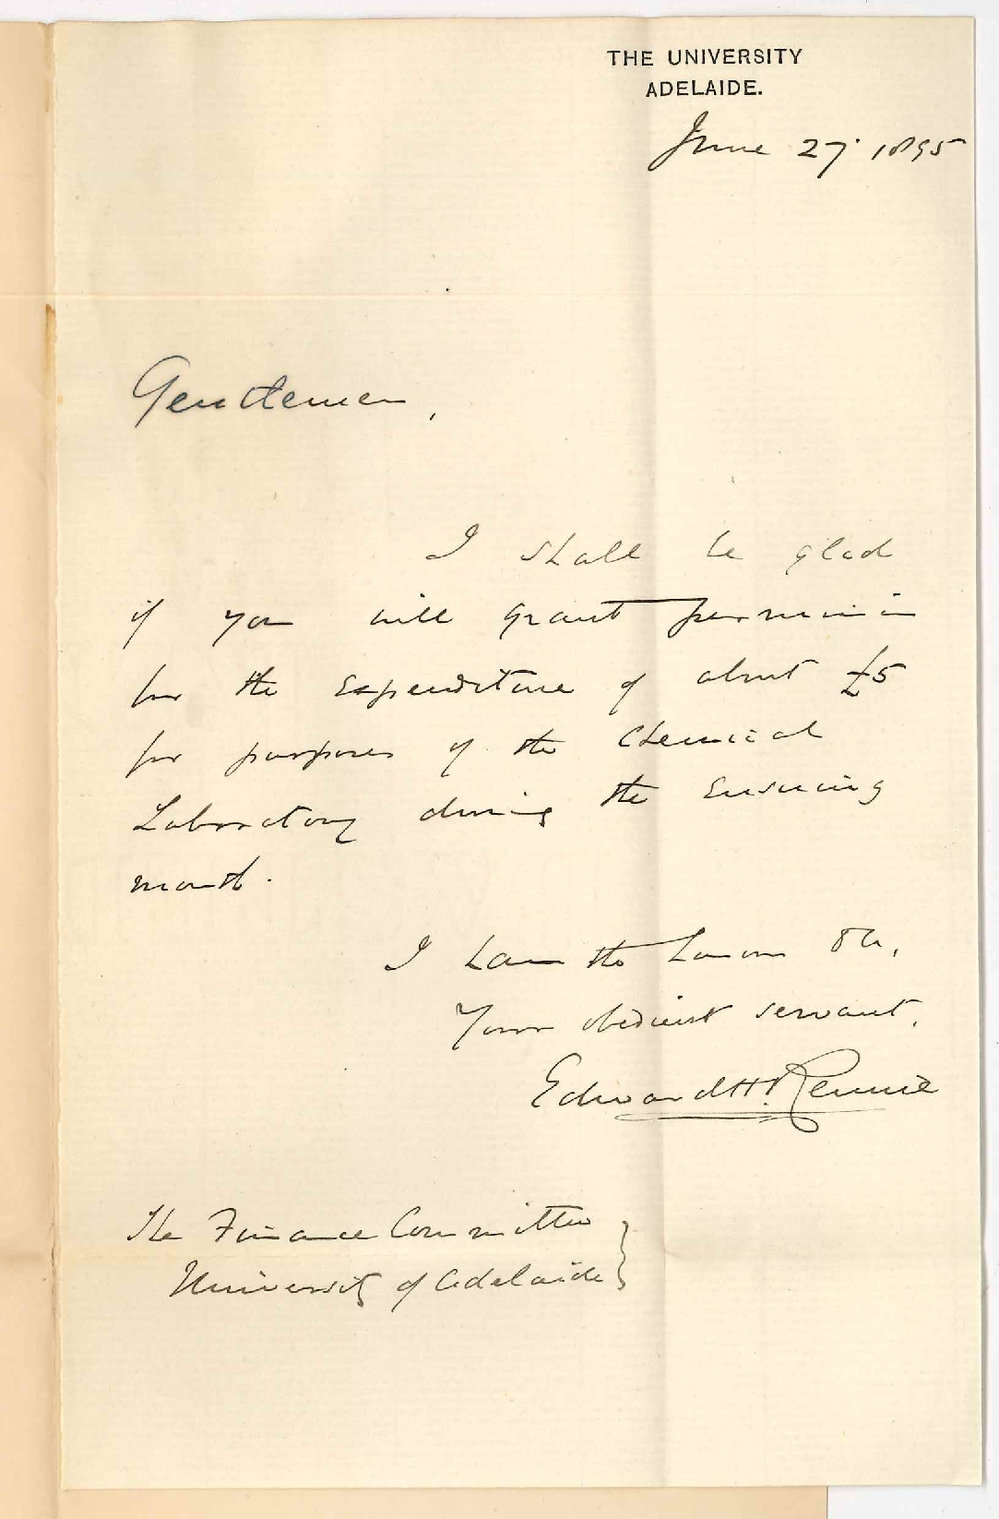 THE UNIVERSITY
ADELAIDE.
June 27. 1895
Gentlemen,
I shall be glad
if you will grant permission
for the expenditure of about £5
for purposes of the Chemical
Laboratory during the ensuing
month.
I have the honour &c,
Your obedient servant,
Edward H. Rennie
The Finance Committee
University of Adelaide